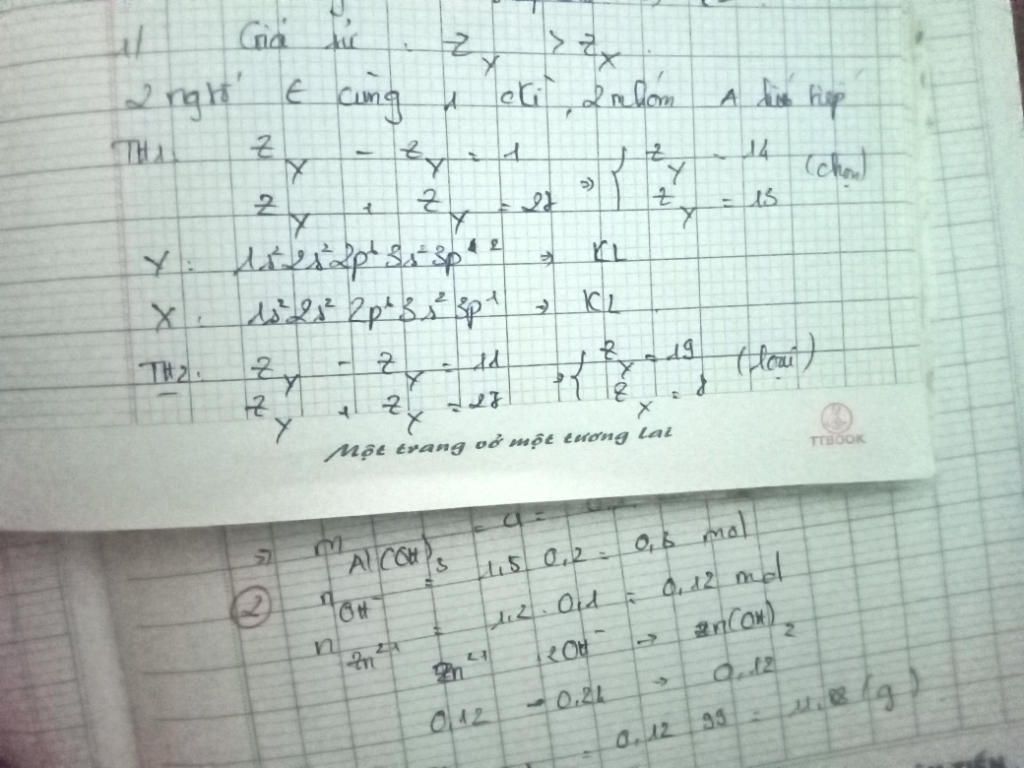 1) Giả sử . Z_Y > Z_X .
2 ngtố ∈ cùng 1 CKì, 2 nhóm A liên tiếp
TH1: Z_Y - Z_Y = 1 ⇒ { Z_Y = 14 (chọn)
Z_Y + Z_Y = 27 Z_Y = 13
Y : 1s²2s²2p⁶3s²3p² ⇒ KL
X : 1s²2s²2p⁶3s²3p¹ ⇒ KL
TH2: Z_Y - Z_Y = 11 ⇒ { Z_Y = 19 (loại)
Z_Y + Z_X = 27 Z_X = 8
Một trang vở một tương lai
TTBOOK
⇒ m Al(OH)₃
② n OH⁻ = 1,5 0,2 = 0,3 mol
n Zn²⁺ = 1,2 . 0,1 = 0,12 mol
Zn²⁺ + 2OH⁻ → Zn(OH)₂
0,12 → 0,24 → 0,12
= 0,12 99 = 11,88 (g)